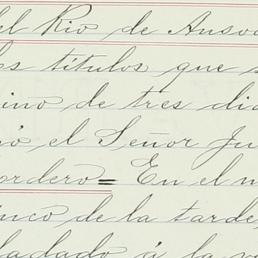 del Rio de Ansoa
los títulos que s
mino de tres dia
nó el Señor Ju
ordero= En el m
inco de la tarde,
ladado á la v